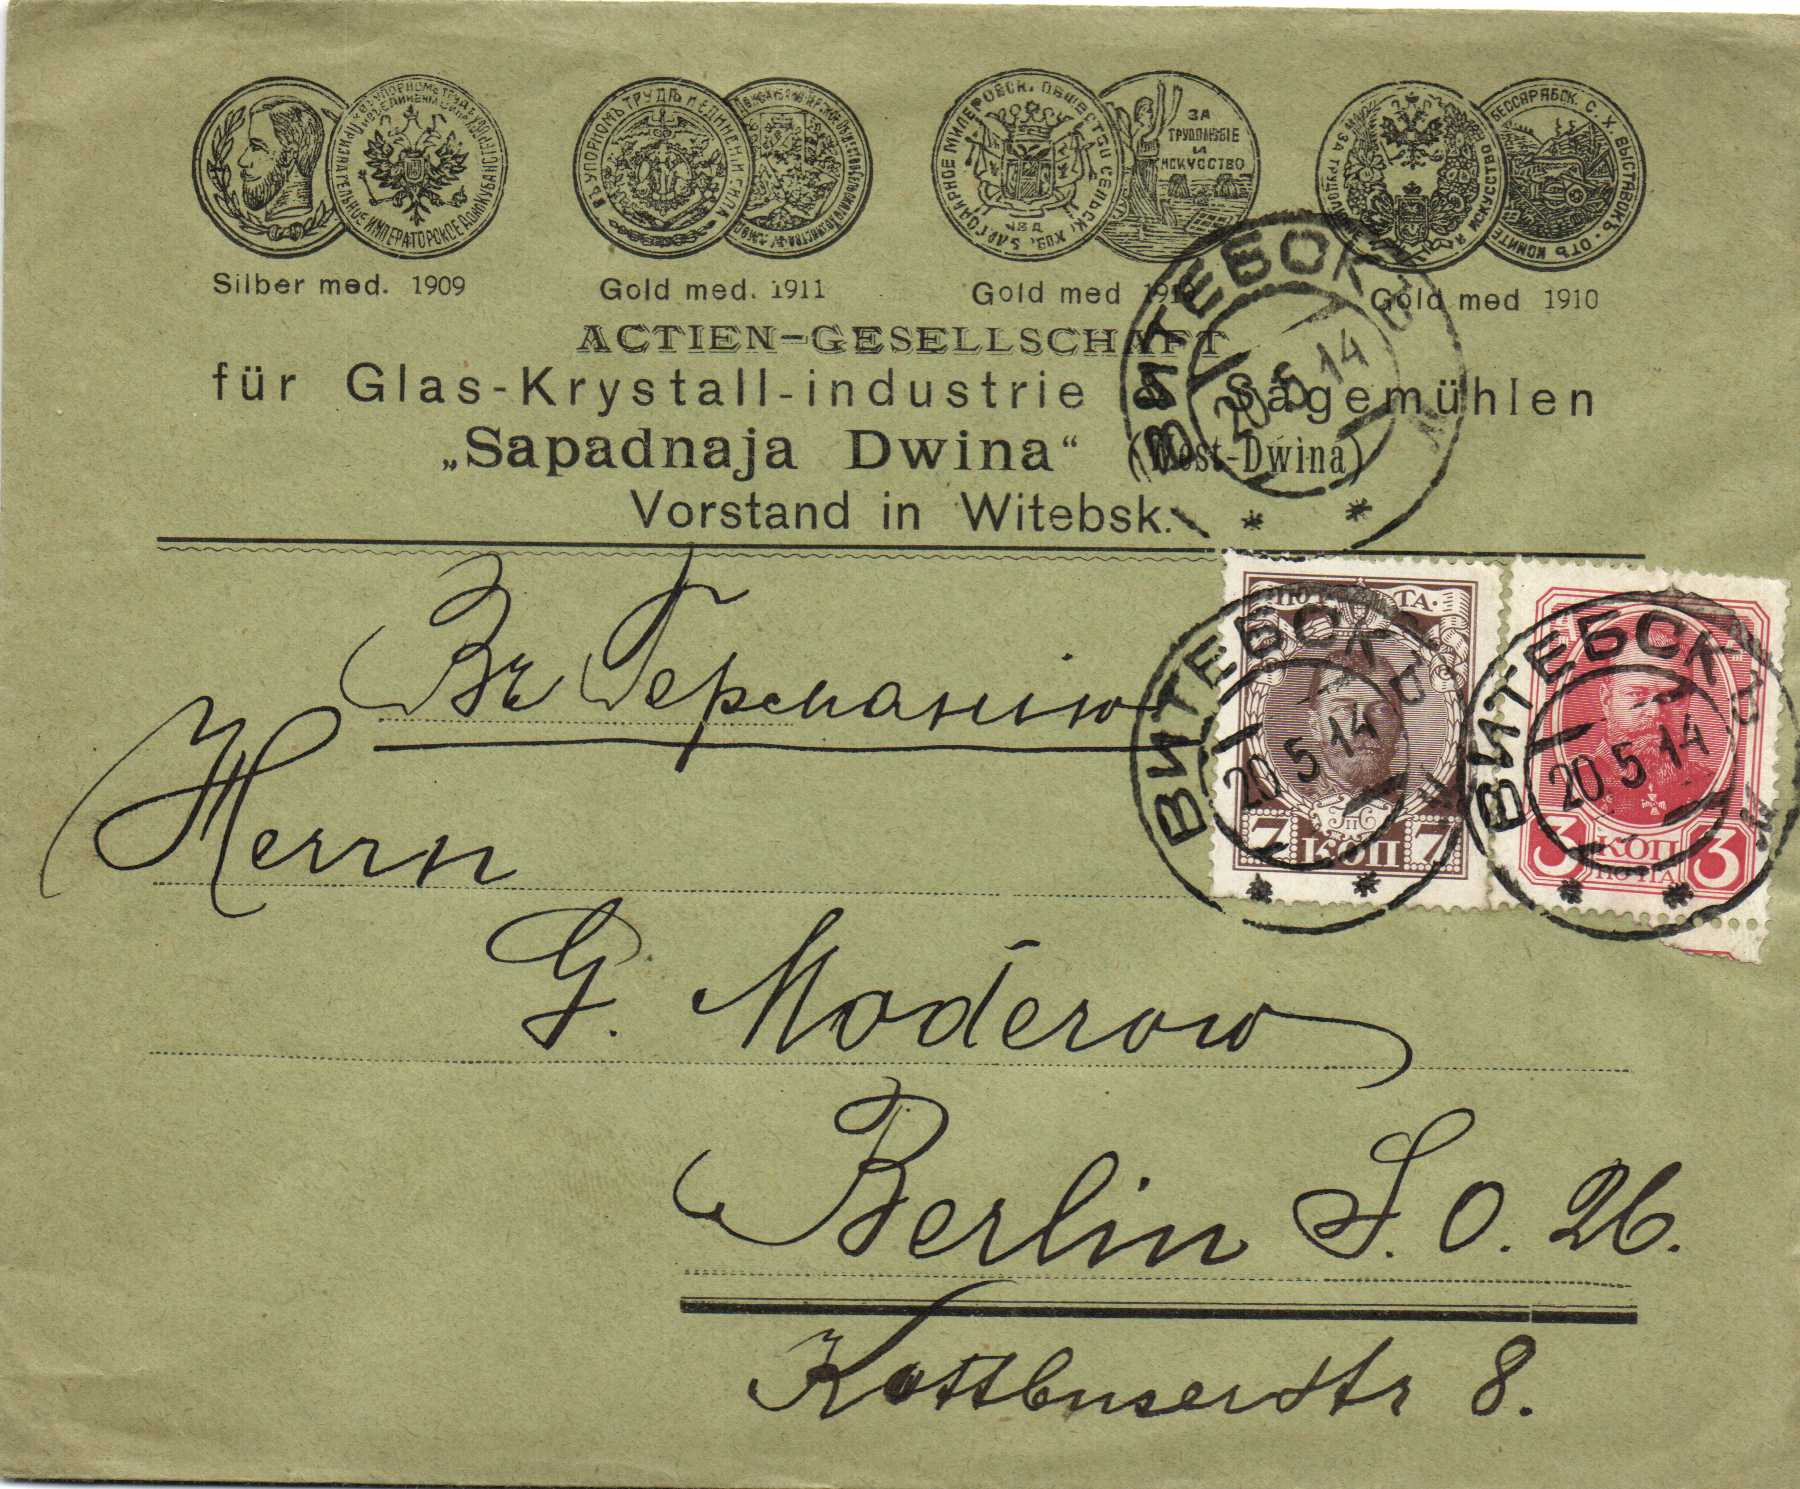 Silber med. 1909
Gold med. 1911
Gold med
Gold med 1910
ЗА
ТРУДОЛЮБIЕ
И
ИСКУССТВО
ACTIEN-GESELLSCHAFT
für Glas-Krystall-industrie & Sägemühlen
„Sapadnaja Dwina“ (West-Dwina)
Vorstand in Witebsk.
ВИТЕБСКЪ
20 5 14
Въ Германiю
ВИТЕБСКЪ
20 5 14
7 КОП 7
ВИТЕБСКЪ
20 5 14
3 КОП 3
ПОЧТА
Herrn
G. Moderow
Berlin S. O. 26.
Kottbuserstr 8.